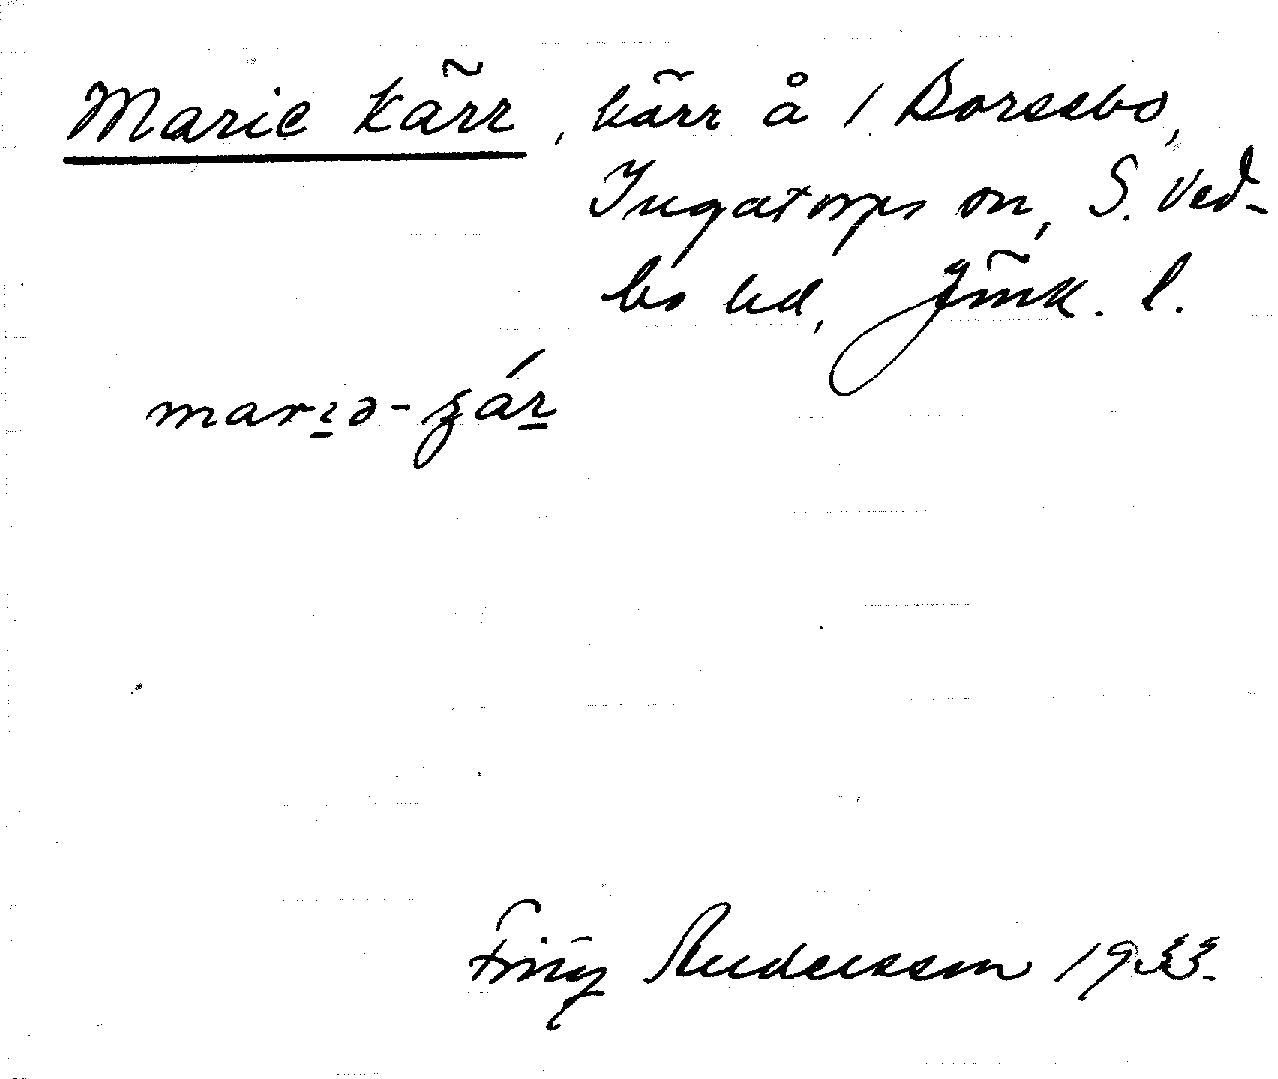 Marie kärr, kärr å 1 Borssbo,
Ingatorps sn, S. Ved-
bo hd, Jönk. l.
Fritz Andersson 1933.